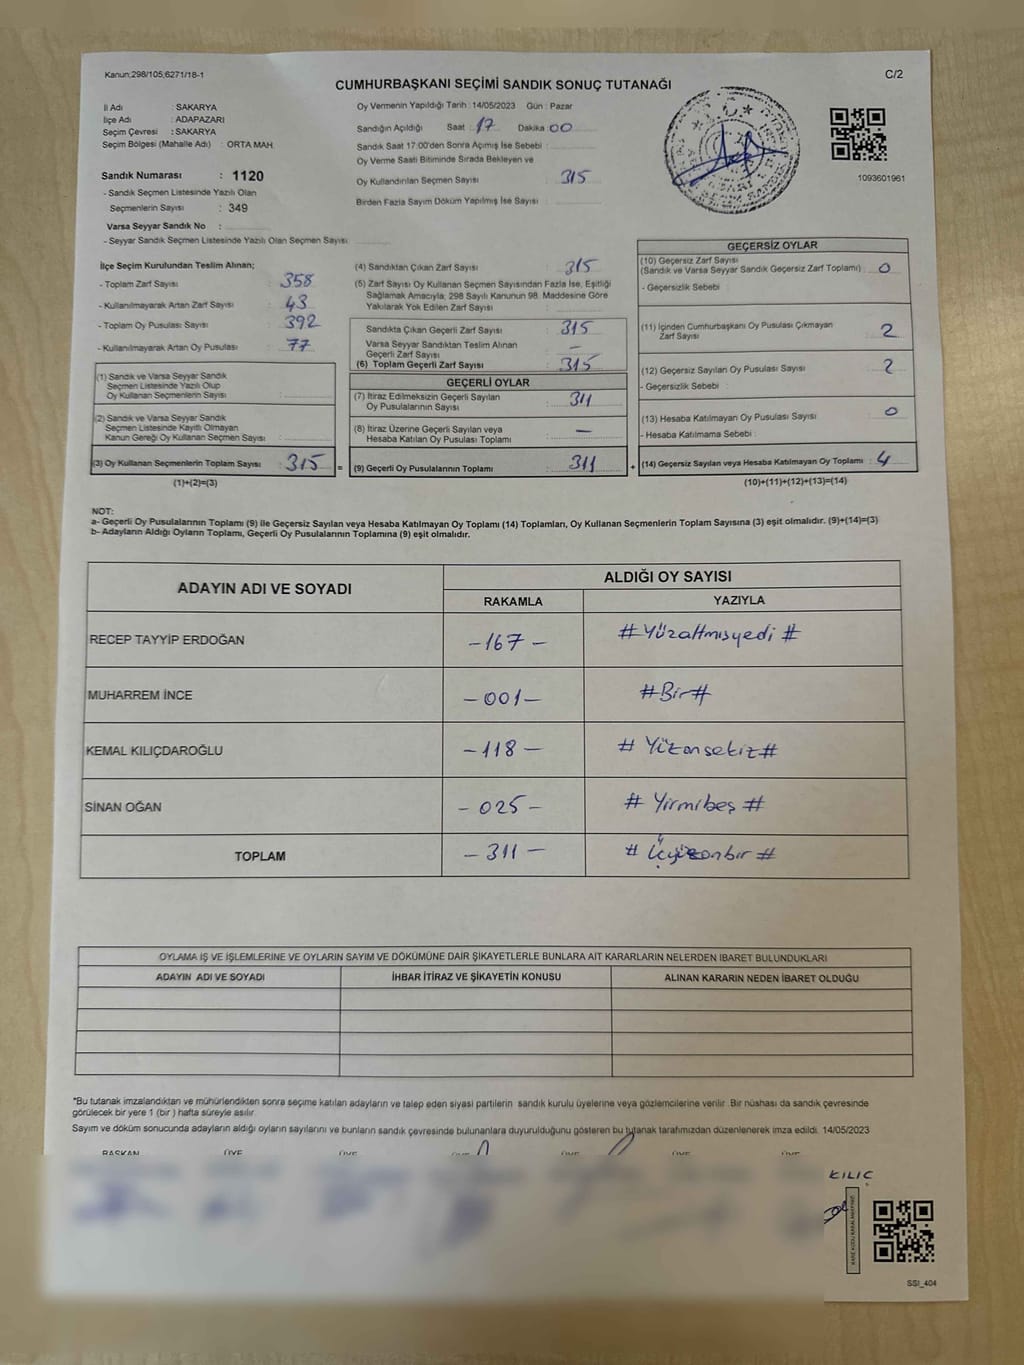 Kanun;298/105;6271/18-1
C/2
CUMHURBAŞKANI SEÇİMİ SANDIK SONUÇ TUTANAĞI
İli Adı : SAKARYA
İlçe Adı : ADAPAZARI
Seçim Çevresi : SAKARYA
Seçim Bölgesi (Mahalle Adı) : ORTA MAH.
Sandık Numarası : 1120
- Sandık Seçmen Listesinde Yazılı Olan
Seçmenlerin Sayısı : 349
Varsa Seyyar Sandık No :
- Seyyar Sandık Seçmen Listesinde Yazılı Olan Seçmen Sayısı
Oy Vermenin Yapıldığı Tarih : 14/05/2023 Gün : Pazar
Sandığın Açıldığı Saat : 17 Dakika : 00
Sandık Saat 17:00'den Sonra Açımış İse Sebebi :
Oy Verme Saati Bitiminde Sırada Bekleyen ve
Oy Kullandırılan Seçmen Sayısı : 315
Birden Fazla Sayım Döküm Yapılmış İse Sayısı :
1093601961
İlçe Seçim Kurulundan Teslim Alınan;
- Toplam Zarf Sayısı : 358
- Kullanılmayarak Artan Zarf Sayısı : 43
- Toplam Oy Pusulası Sayısı : 392
- Kullanılmayarak Artan Oy Pusulası : 77
(1) Sandık ve Varsa Seyyar Sandık
Seçmen Listesinde Yazılı Olup
Oy Kullanan Seçmenlerin Sayısı :
(2) Sandık ve Varsa Seyyar Sandık
Seçmen Listesinde Kayıtlı Olmayan
Kanun Gereği Oy Kullanan Seçmen Sayısı :
(3) Oy Kullanan Seçmenlerin Toplam Sayısı : 315 =
(1)+(2)=(3)
(4) Sandıktan Çıkan Zarf Sayısı : 315
(5) Zarf Sayısı Oy Kullanan Seçmen Sayısından Fazla İse, Eşitliği
Sağlamak Amacıyla; 298 Sayılı Kanunun 98. Maddesine Göre
Yakılarak Yok Edilen Zarf Sayısı :
Sandıkta Çıkan Geçerli Zarf Sayısı : 315
Varsa Seyyar Sandıktan Teslim Alınan
Geçerli Zarf Sayısı : –
(6) Toplam Geçerli Zarf Sayısı : 315
GEÇERLİ OYLAR
(7) İtiraz Edilmeksizin Geçerli Sayılan
Oy Pusulalarının Sayısı : 311
(8) İtiraz Üzerine Geçerli Sayılan veya
Hesaba Katılan Oy Pusulası Toplamı : –
(9) Geçerli Oy Pusulalarının Toplamı : 311 +
GEÇERSİZ OYLAR
(10) Geçersiz Zarf Sayısı
(Sandık ve Varsa Seyyar Sandık Geçersiz Zarf Toplamı) : 0
- Geçersizlik Sebebi :
(11) İçinden Cumhurbaşkanı Oy Pusulası Çıkmayan
Zarf Sayısı : 2
(12) Geçersiz Sayılan Oy Pusulası Sayısı : 2
- Geçersizlik Sebebi :
(13) Hesaba Katılmayan Oy Pusulası Sayısı : 0
- Hesaba Katılmama Sebebi :
(14) Geçersiz Sayılan veya Hesaba Katılmayan Oy Toplamı : 4
(10)+(11)+(12)+(13)=(14)
NOT:
a- Geçerli Oy Pusulalarının Toplamı (9) ile Geçersiz Sayılan veya Hesaba Katılmayan Oy Toplamı (14) Toplamları, Oy Kullanan Seçmenlerin Toplam Sayısına (3) eşit olmalıdır. (9)+(14)=(3)
b- Adayların Aldığı Oyların Toplamı, Geçerli Oy Pusulalarının Toplamına (9) eşit olmalıdır.
ADAYIN ADI VE SOYADI
ALDIĞI OY SAYISI
RAKAMLA YAZIYLA
RECEP TAYYİP ERDOĞAN -167- #Yüzaltmışyedi#
MUHARREM İNCE -001- #Bir#
KEMAL KILIÇDAROĞLU -118- #Yüzonsekiz#
SİNAN OĞAN -025- #Yirmibeş#
TOPLAM -311- #Üçyüzonbir#
OYLAMA İŞ VE İŞLEMLERİNE VE OYLARIN SAYIM VE DÖKÜMÜNE DAİR ŞİKAYETLERLE BUNLARA AİT KARARLARIN NELERDEN İBARET BULUNDUKLARI
ADAYIN ADI VE SOYADI İHBAR İTİRAZ VE ŞİKAYETİN KONUSU ALINAN KARARIN NEDEN İBARET OLDUĞU
*Bu tutanak imzalandıktan ve mühürlendikten sonra seçime katılan adayların ve talep eden siyasi partilerin sandık kurulu üyelerine veya gözlemcilerine verilir. Bir nüshası da sandık çevresinde
görülecek bir yere 1 (bir ) hafta süreyle asılır.
Sayım ve döküm sonucunda adayların aldığı oyların sayılarını ve bunların sandık çevresinde bulunanlara duyurulduğunu gösteren bu tutanak tarafımızdan düzenlenerek imza edildi. 14/05/2023
BAŞKAN ÜYE ÜYE ÜYE ÜYE ÜYE ÜYE
KILIC
SSI_404